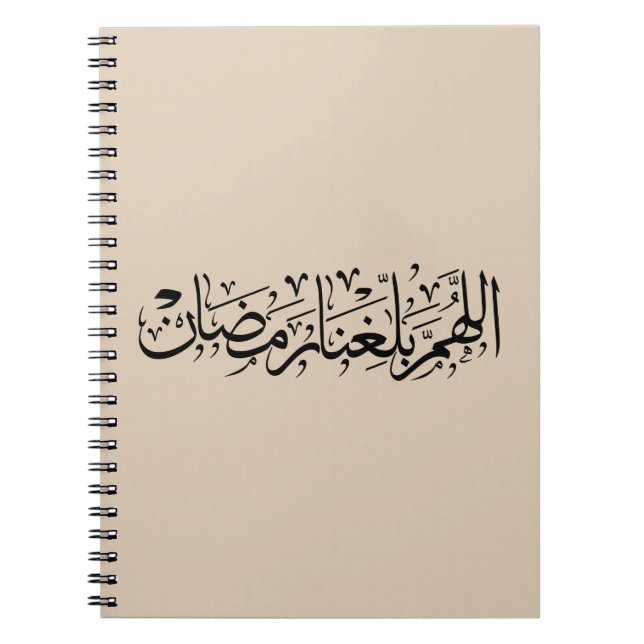 اللهُمَّ بَلِّغنَا رَمَضَانْ